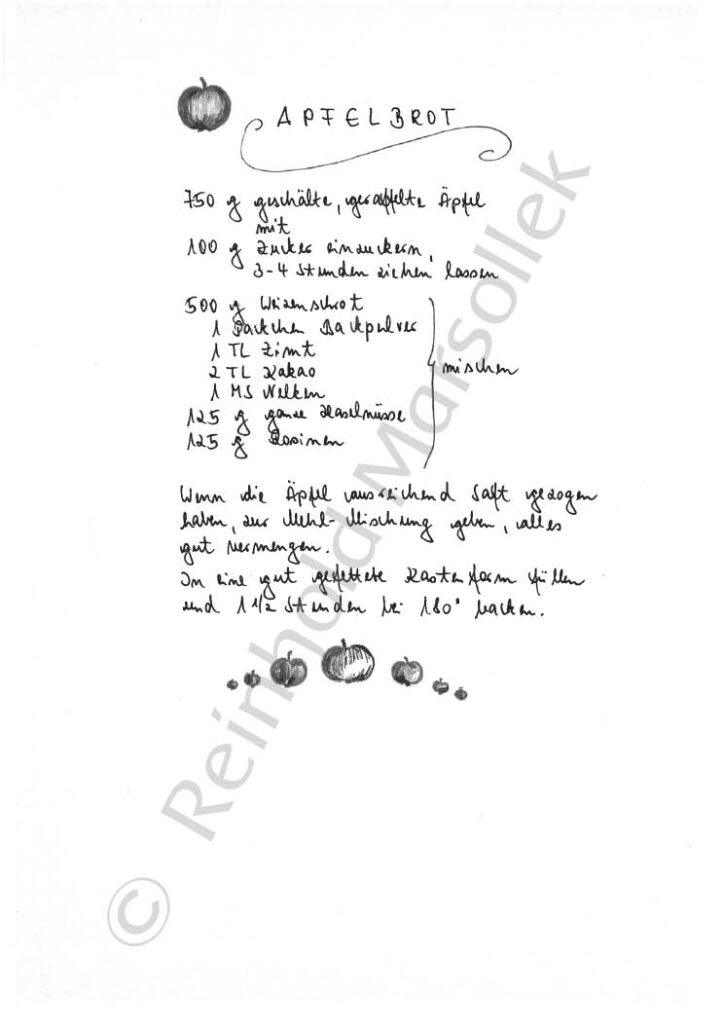 APFELBROT
750 g geschälte, geraffelte Äpfel
mit
100 g Zucker einzuckern,
3-4 Stunden ziehen lassen
500 g Weizenschrot
1 Päckchen Backpulver
1 TL Zimt
2 TL Kakao
1 MS Nelken
125 g ganze Haselnüsse
125 g Rosinen
mischen
Wenn die Äpfel ausreichend Saft gezogen
haben, zur Mehl-Mischung geben, alles
gut vermengen.
In eine gut gefettete Kastenform füllen
und 1 1/2 Stunden bei 180° backen.
© Reinhold Marsollek